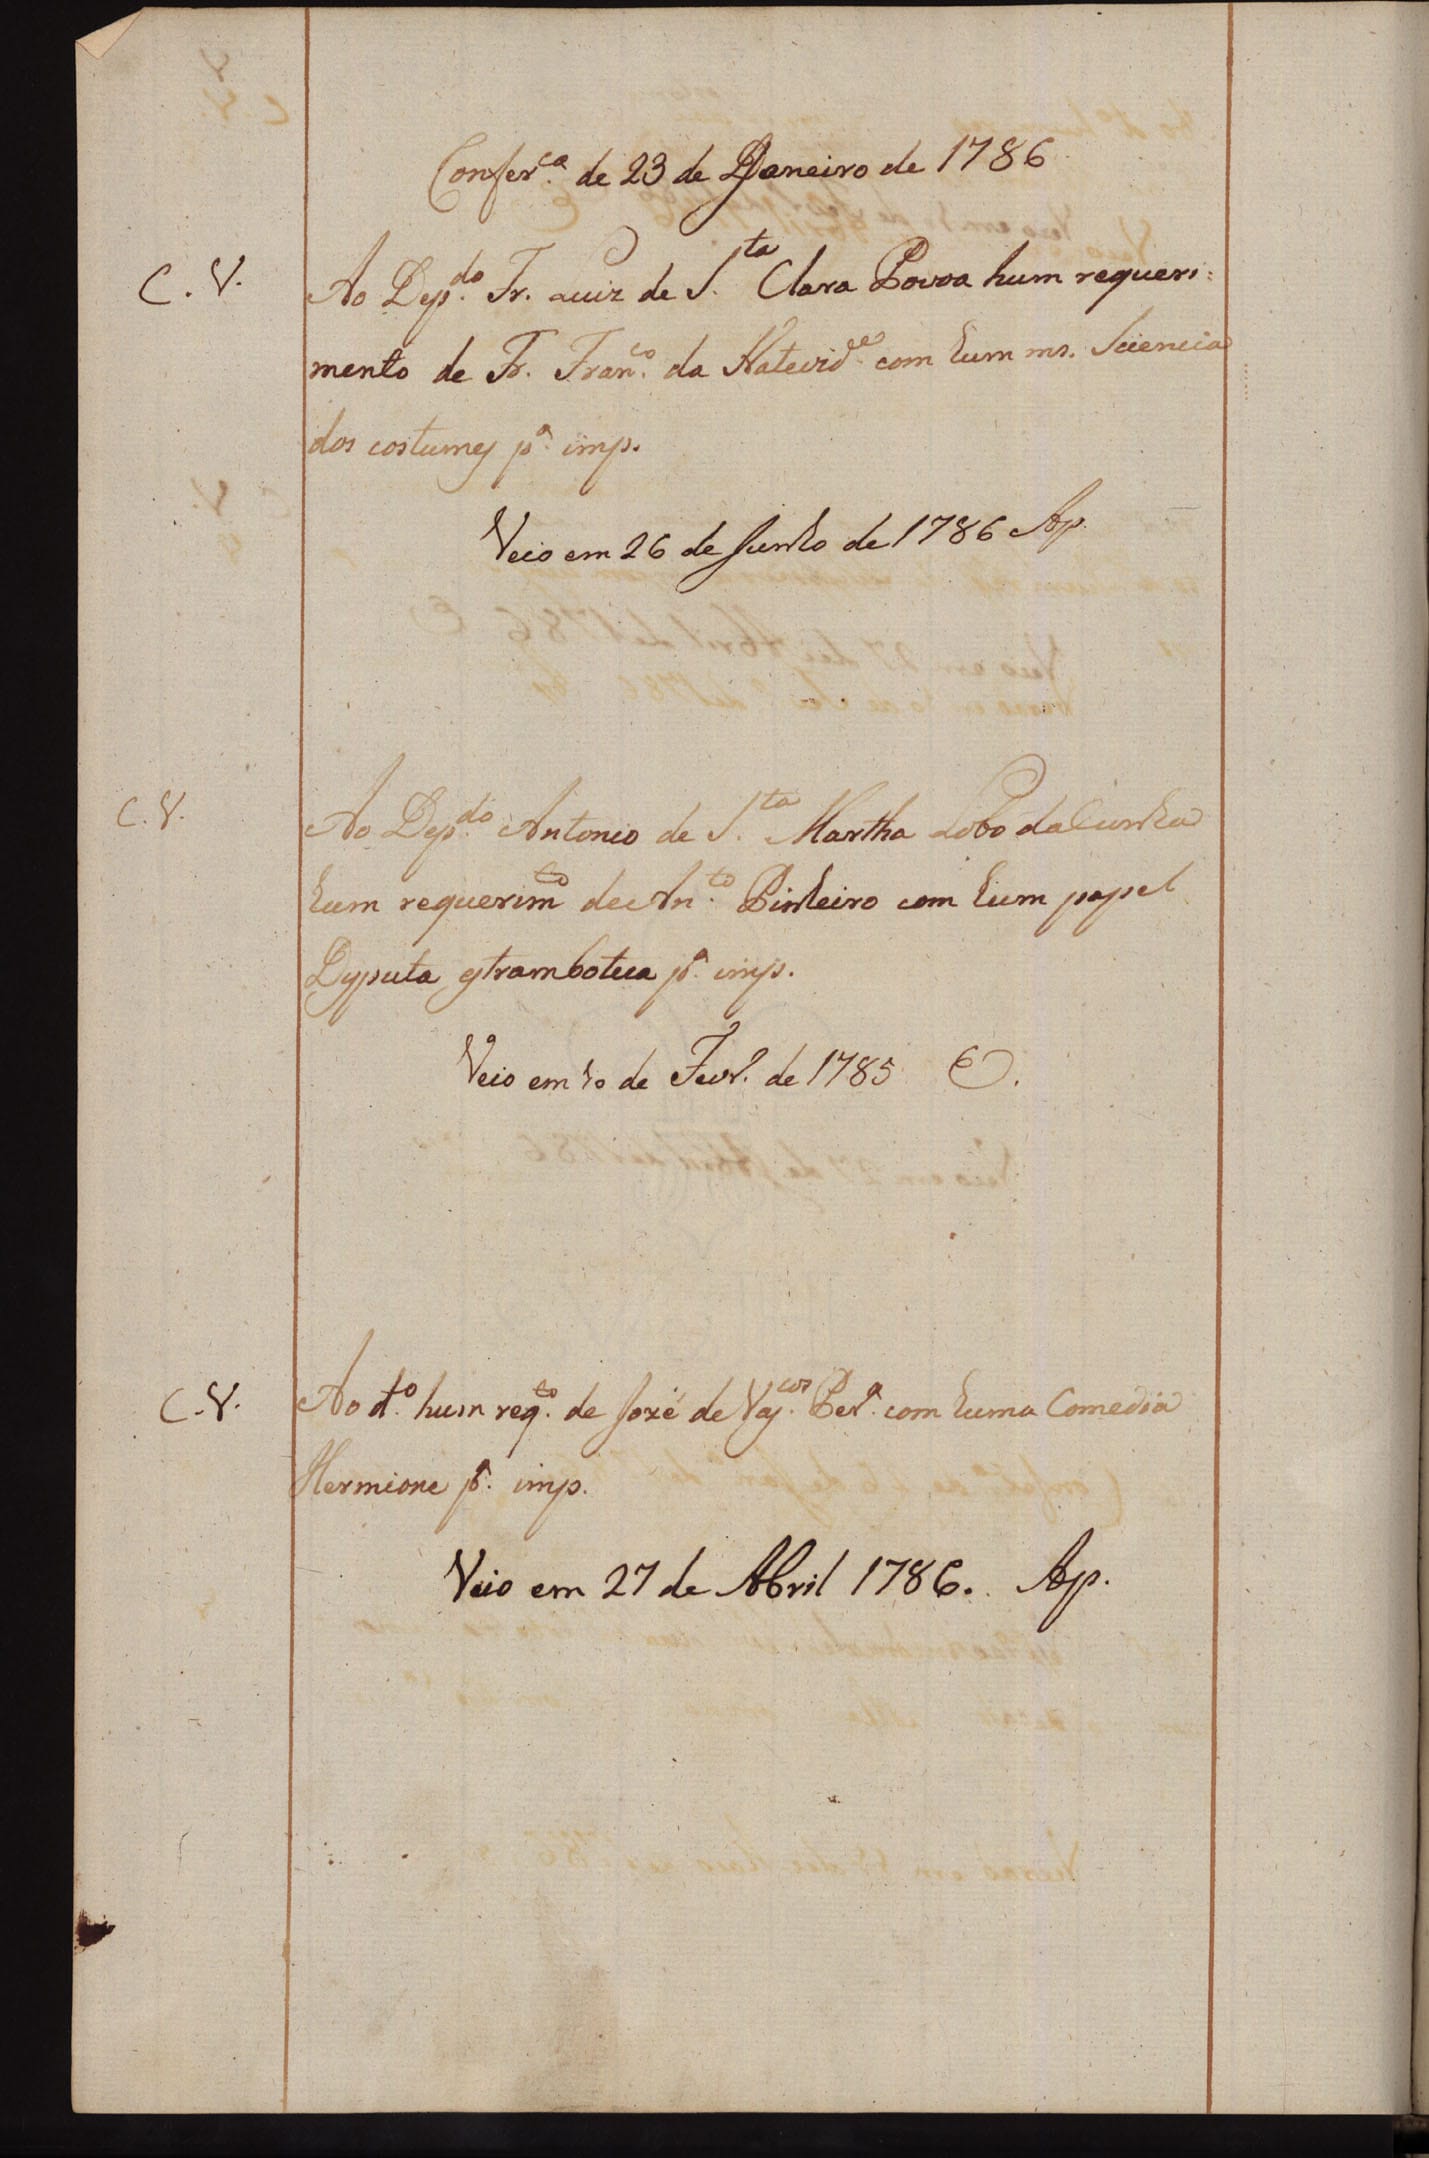 Confer.ca de 23 de Janeiro de 1786
C. V. Ao Dep.do Fr. Luiz de S.ta Clara Povoa hum requeri:
mento de Fr. Fran.co da Nativid.e com hum ms. Sciencia
dos costumes p.a imp.
Veio em 26 de Junho de 1786 Ap.
C. V. Ao Dep.do Antonio de S.ta Martha Lobo da Cunha
hum requerim.to de An.to Pinheiro com hum papel
Desputa estrambotica p.a imp.
Veio em 10 de Fevr.o de 1785 E.
C. V. Ao d.to hum req.to de José de Vas.cos Per.a com huma Comedia
Hermione p.a imp.
Veio em 27 de Abril 1786. Ap.